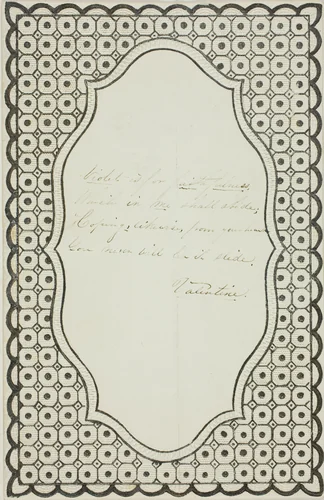 Violet is for faithfulness,
Which in me shall abide,
Hoping likewise, from your
You never will
Valentine.